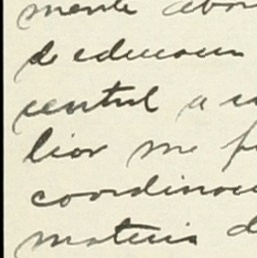 mente
de educacion
central a
lior me
coordinacion
materia d